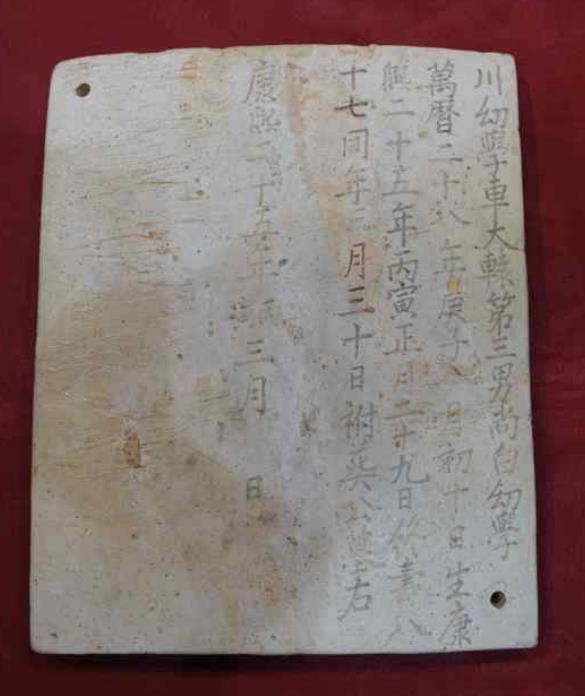 川幼學車大轅第三男尚白幼學
萬曆二十八年庚子八月初十日生康
熙二十五年丙寅正月二十九日終壽八
十七同年三月三十日祔葬公墓右
康熙二十五年丙寅三月 日